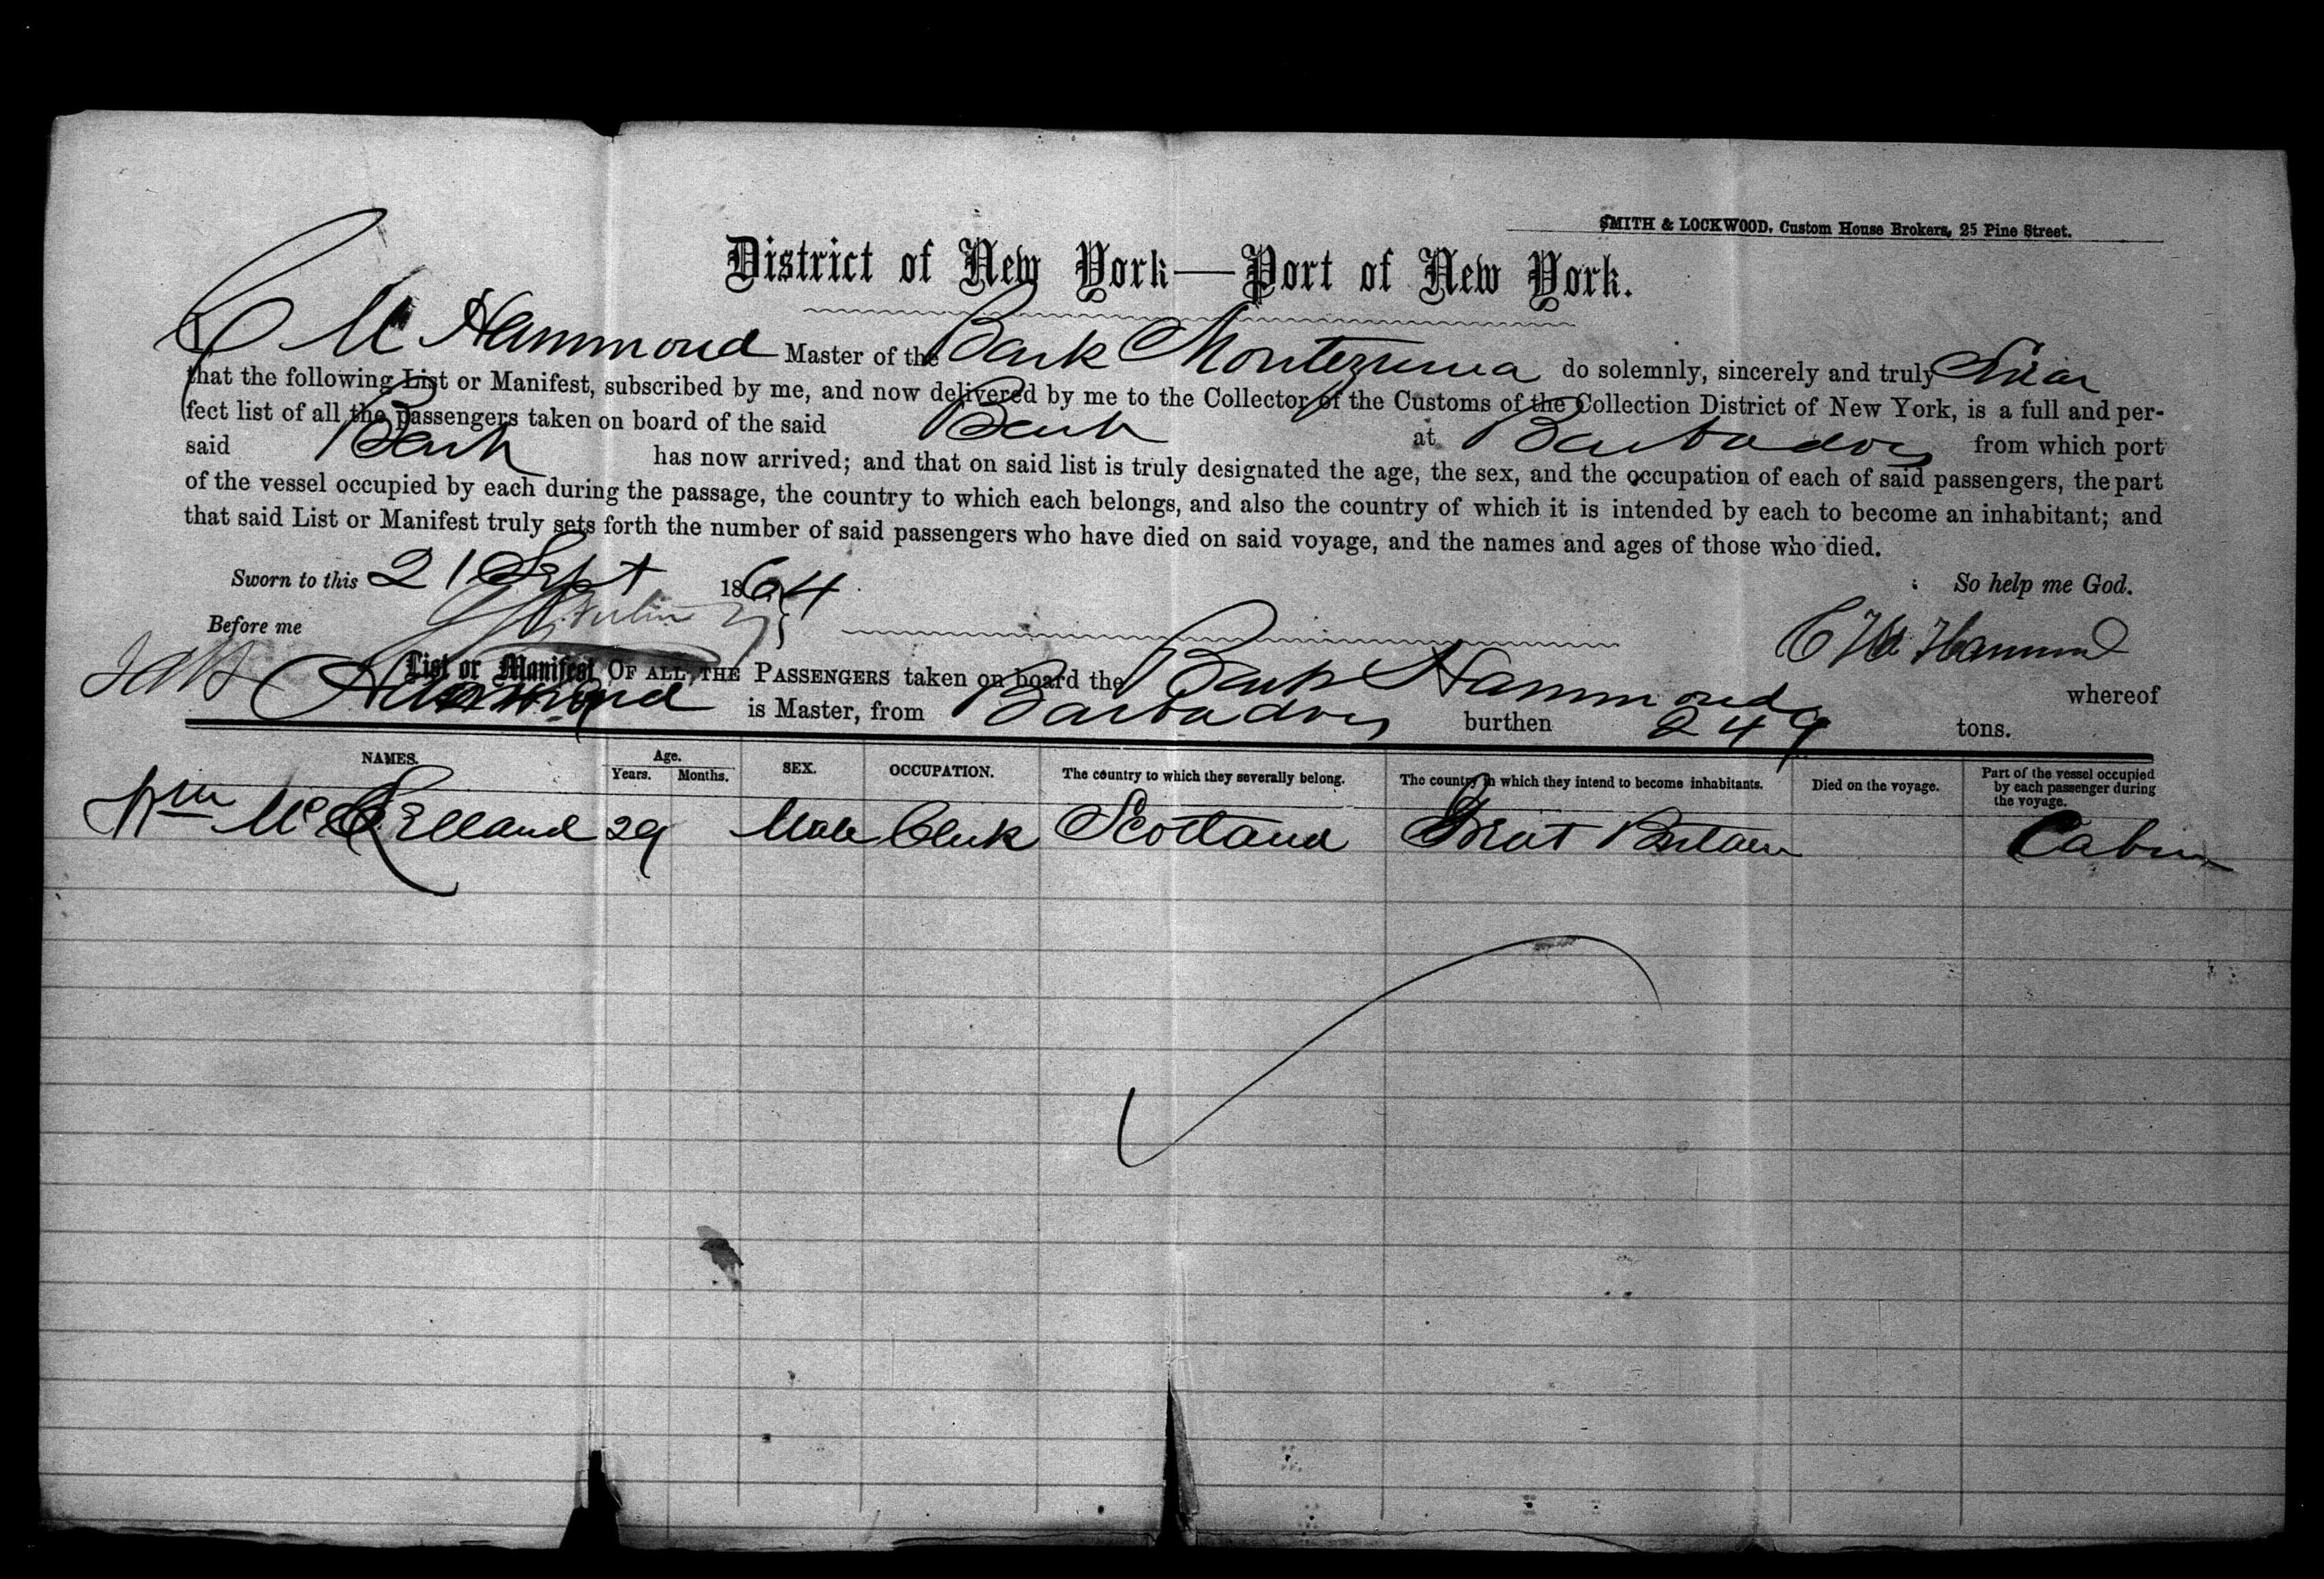 SMITH & LOCKWOOD, Custom House Brokers, 25 Pine Street.
District of New York—Port of New York.
I, C M Hammond Master of the Bark Montezuma do solemnly, sincerely and truly Swear
that the following List or Manifest, subscribed by me, and now delivered by me to the Collector of the Customs of the Collection District of New York, is a full and per-
fect list of all the passengers taken on board of the said Bark at Barbados from which port
said Bark has now arrived; and that on said list is truly designated the age, the sex, and the occupation of each of said passengers, the part
of the vessel occupied by each during the passage, the country to which each belongs, and also the country of which it is intended by each to become an inhabitant; and
that said List or Manifest truly sets forth the number of said passengers who have died on said voyage, and the names and ages of those who died.
Sworn to this 21 Sept 1864 So help me God.
Before me C M Hammond
List or Manifest OF ALL THE PASSENGERS taken on board the Bark Hammond whereof
is Master, from Barbados burthen 249 tons.
NAMES. Age. Years. Months. SEX. OCCUPATION. The country to which they severally belong. The country in which they intend to become inhabitants. Died on the voyage. Part of the vessel occupied by each passenger during the voyage.
Wm Mc Clelland 29 Male Clerk Scotland Great Britain Cabin